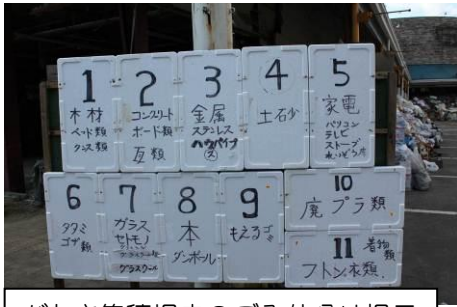 1
木材
ベッド類
タンス類
2
コンクリート
ボード類
瓦類
3
金属
ステンレス
4
土石砂
5
家電
パソコン
テレビ
ストーブ
れいぞう庫
6
タタミ
ゴザ類
7
ガラス
セトモノ
グラスウール
8
本
ダンボール
9
もえるゴミ
10
廃プラ類
11 着物類
フトン衣類